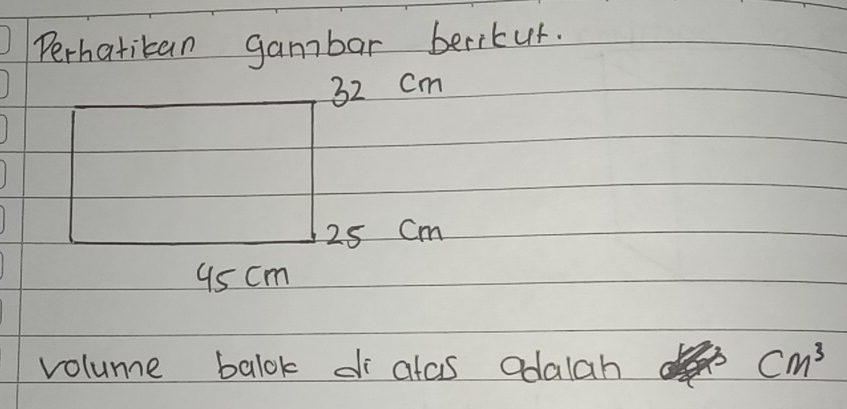 Perhatikan gambar berikut.
32 cm
25 cm
45 cm
volume balok di atas adalah cm³